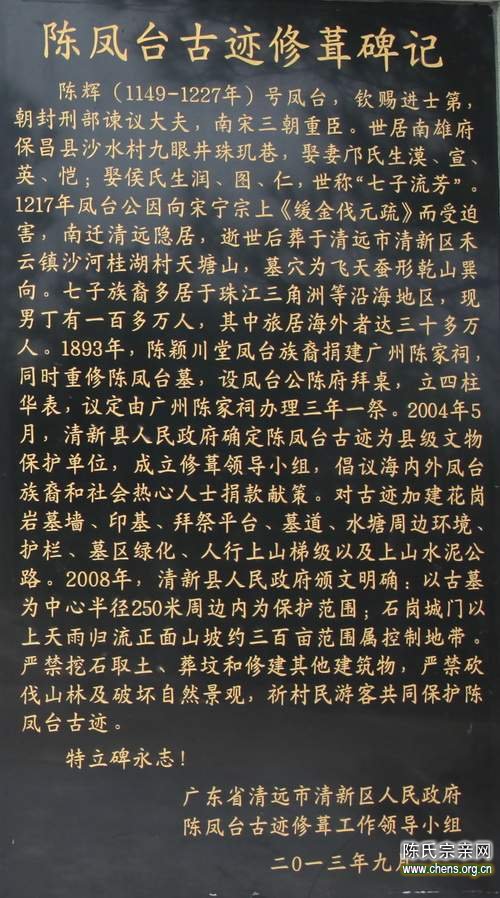 陈凤台古迹修葺碑记
陈辉（1149-1227年）号凤台，钦赐进士第，
朝封刑部谏议大夫，南宋三朝重臣。世居南雄府
保昌县沙水村九眼井珠玑巷，娶妻邝氏生漠、宣、
英、恺；娶侯氏生润、图、仁，世称“七子流芳”。
1217年凤台公因向宋宁宗上《缓金伐元疏》而受迫
害，南迁清远隐居，逝世后葬于清远市清新区禾
云镇沙河桂湖村天塘山，墓穴为飞天蚕形乾山巽
向。七子族裔多居于珠江三角洲等沿海地区，现
男丁有一百多万人，其中旅居海外者达三十多万
人。1893年，陈颖川堂凤台族裔捐建广州陈家祠，
同时重修陈凤台墓，设凤台公陈府拜桌，立四柱
华表，议定由广州陈家祠办理三年一祭。2004年5
月，清新县人民政府确定陈凤台古迹为县级文物
保护单位，成立修葺领导小组，倡议海内外凤台
族裔和社会热心人士捐款献策。对古迹加建花岗
岩墓墙、印基、拜祭平台、墓道、水塘周边环境、
护栏、墓区绿化、人行上山梯级以及上山水泥公
路。2008年，清新县人民政府颁文明确：以古墓
为中心半径250米周边内为保护范围；石岗城门以
上天雨归流正面山坡约三百亩范围属控制地带。
严禁挖石取土、葬坟和修建其他建筑物，严禁砍
伐山林及破坏自然景观，祈村民游客共同保护陈
凤台古迹。
特立碑永志！
广东省清远市清新区人民政府
陈凤台古迹修葺工作领导小组
二〇一三年九月
陈氏宗亲网
www.chens.org.cn